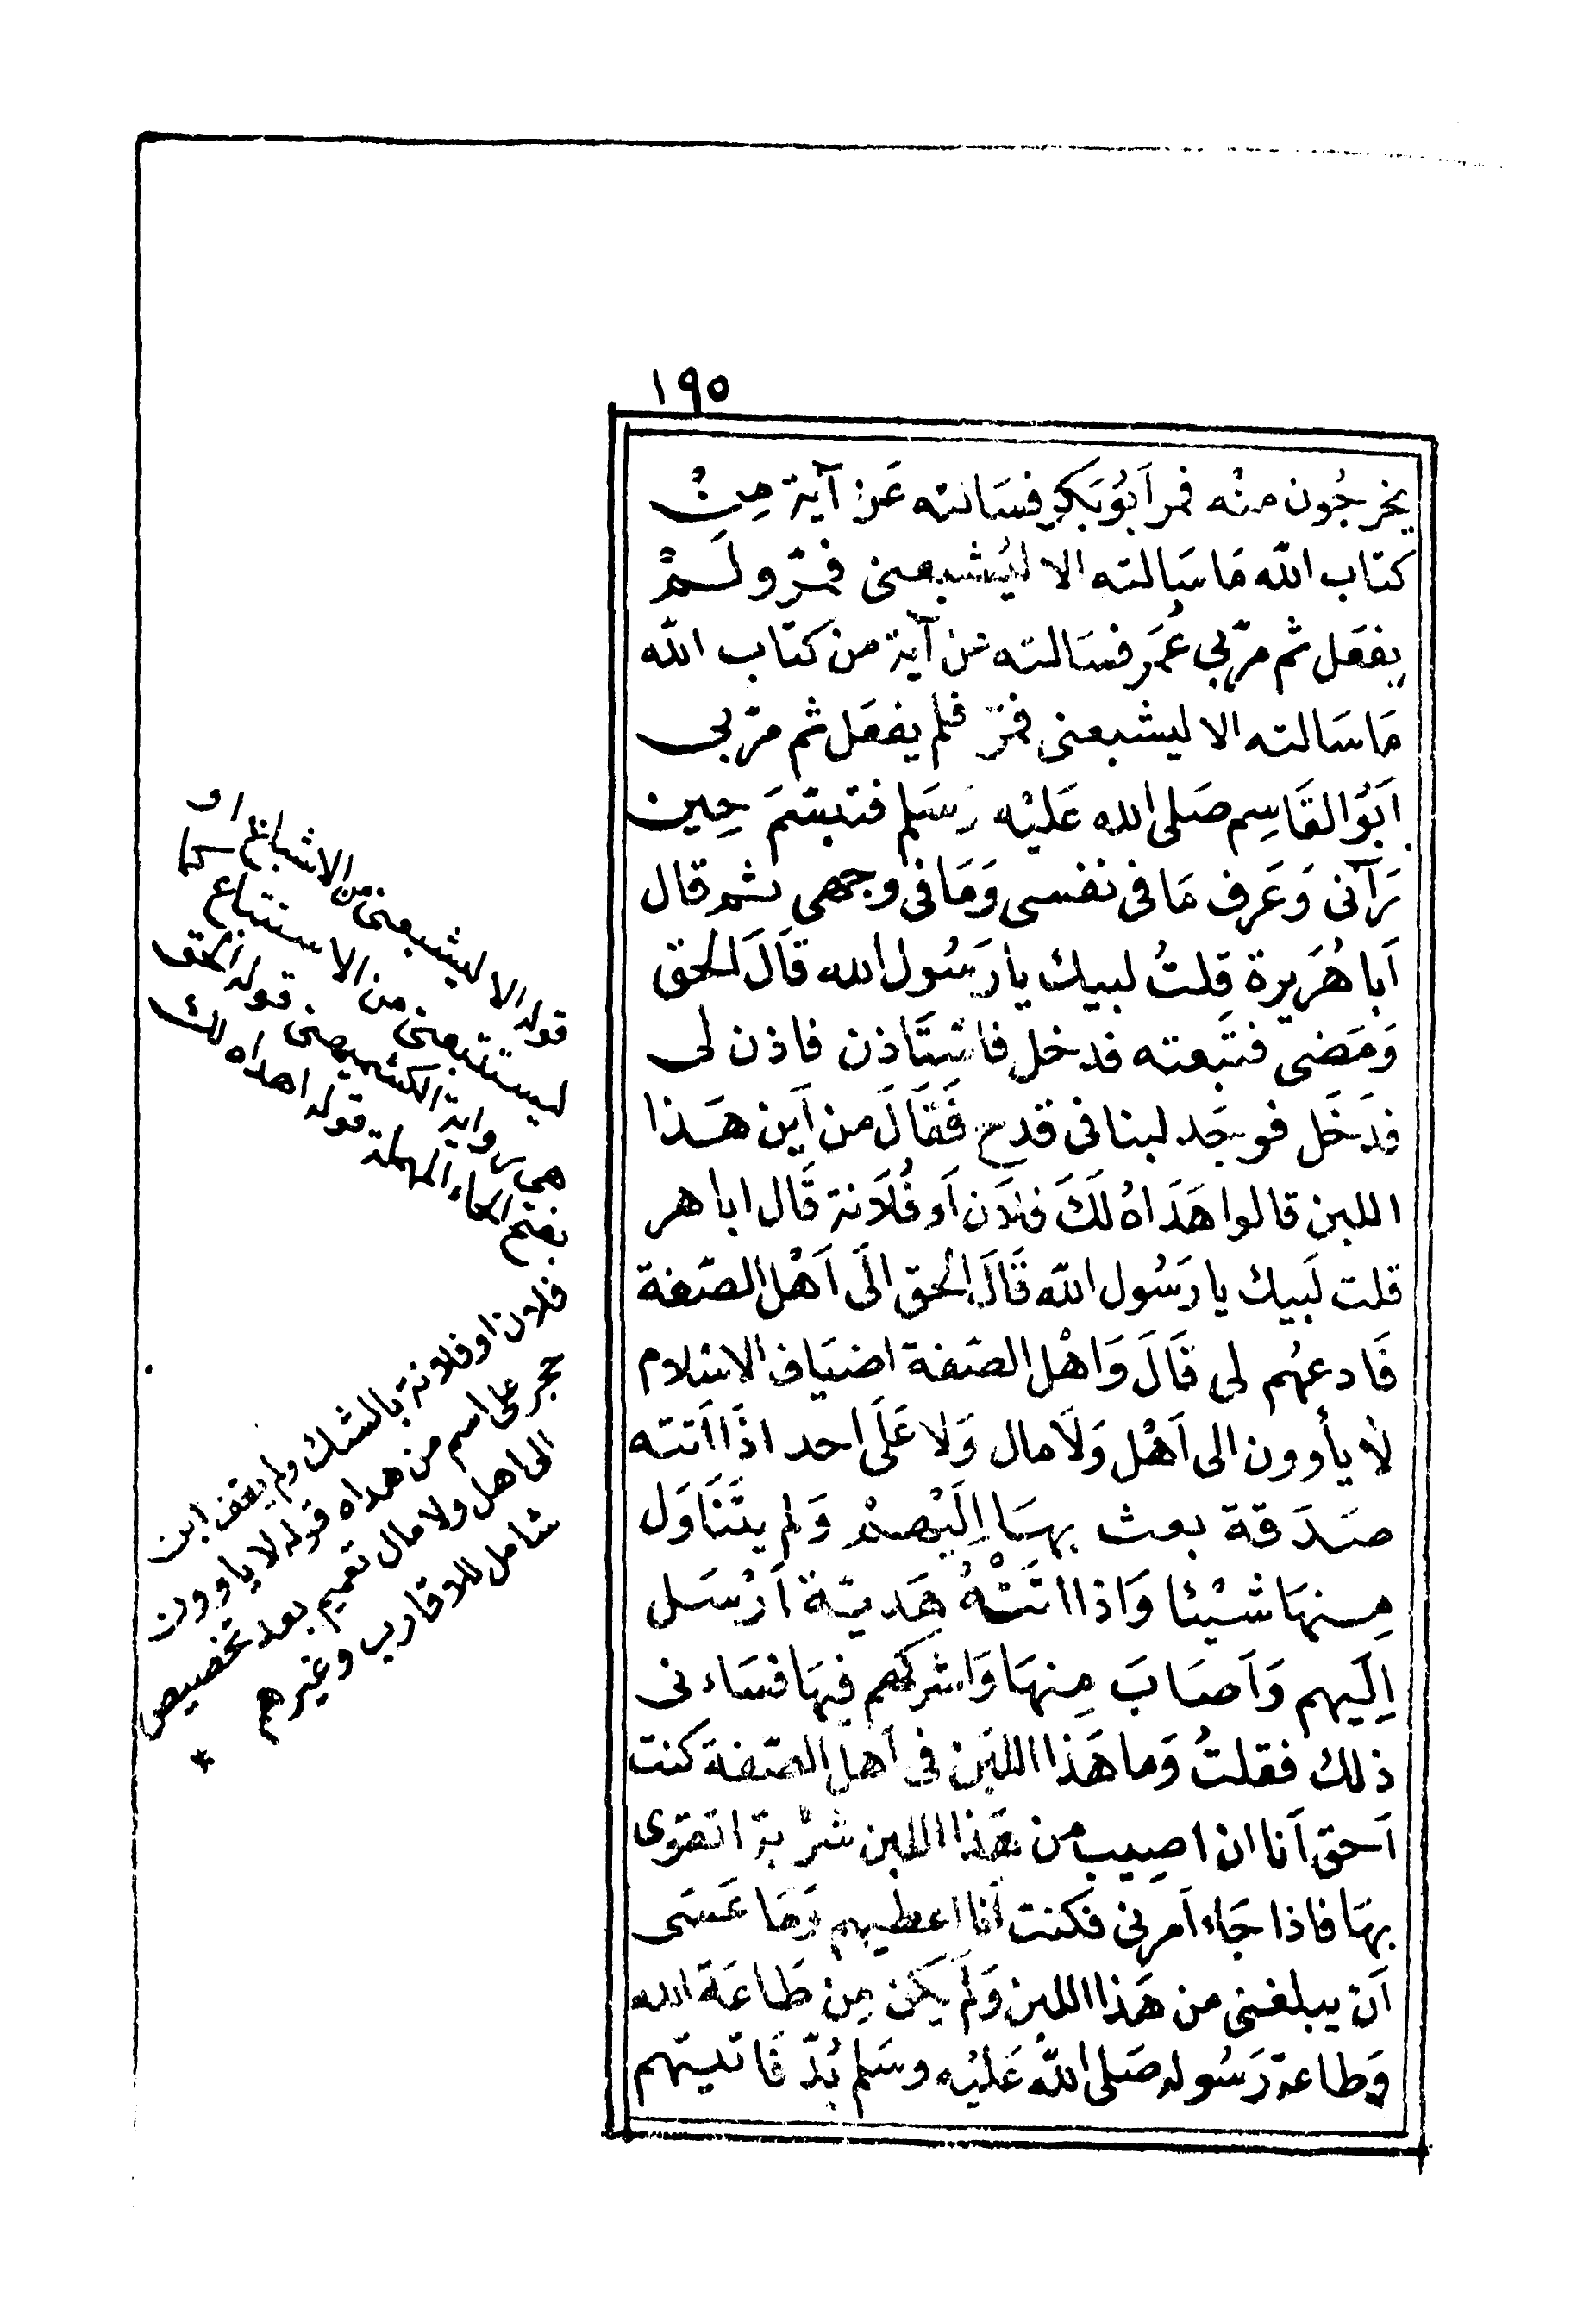 ١٩٥
يخرجُون منْه فمر اَبُو بَكر فسَالته عَن آية مِنْ
كتاب الله مَا سَالته الا ليُشبعنى فمَرّ ولَمْ
يفعَل ثم مرّ بى عُمَر فسَالته عن آية من كتاب الله
مَا سَالته الا ليشبعنى فمَرّ فلم يفعَل ثم مرّ بى
اَبُو القَاسِم صَلى الله عَليْه وَسَلم فتبسّمَ حِين
رَآنى وَعَرف مَا فى نفسى وَمَا فى وجهى ثم قال
اَبا هُرَيرة قلتُ لبيك يا رَسُول الله قَالَ الحق
وَمَضى فتَبعته فدخل فاسْتَاذن فاذن لى
فدَخَل فوجَد لبنا فى قدح فَقَالَ من اَين هَذا
اللبن قالوا هَدَاهُ لَكَ فلَان اَو فُلَانة قَال ابا هر
قلت لَبيك يا رَسُول الله قَالَ الحق الَى اَهْل الصّفة
فَادعهُم لى قَالَ وَاهْل الصّفة اضيَاف الاسْلام
لَا يأوون الى اَهْل وَلَا مال وَلا عَلَى احد اذَا اَتته
صَدَقة بعث بهَا اِلَيْهمْ وَلم يتَنَاوَل
مِنهَا شيْئا وَاذا اتَتْهُ هَديّة اَرْسَل
اِلَيهم وَاَصَابَ مِنهَا وَاشركهم فيهَا فسَاءنى
ذلك فقلتُ وَما هَذا اللبَن فى اَهل الصّفة كنت
اَحق اَنا ان اصِيب من هَذا اللبن شرْبة اتقوى
بهَا فاذا جَاء اَمرنى فكنت اَنا اعطيهم وَمَا عَسَى
اَن يبلغنى من هَذا اللبن وَلَم يكن مِن طَاعَة الله
وَطاعة رَسُوله صَلى الله عَليْه وسَلم بُدّ فَاتيتهم
قوله الا ليشبعنى من الاشباع او
ليستتبعنى من الاستتباع كما
هى رواية الكشميهنى قوله الحق
بفتح الحاء المهملة قوله اهداه لك
فلان او فلانة بالشك ولم يقف ابن
حجر على اسم من هداه قوله لا ياوون
الى اهل ولا مال تعميم بعد تخصيص
شامل للاقارب وغيرهم *